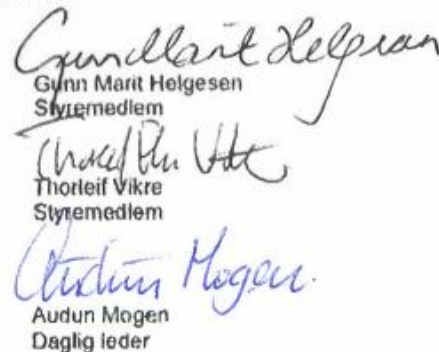 Gunn Marit Helgesen
Gunn Marit Helgesen
Styremedlem
Thorleif Vikre
Styremedlem
Audun Mogen
Audun Mogen
Daglig leder